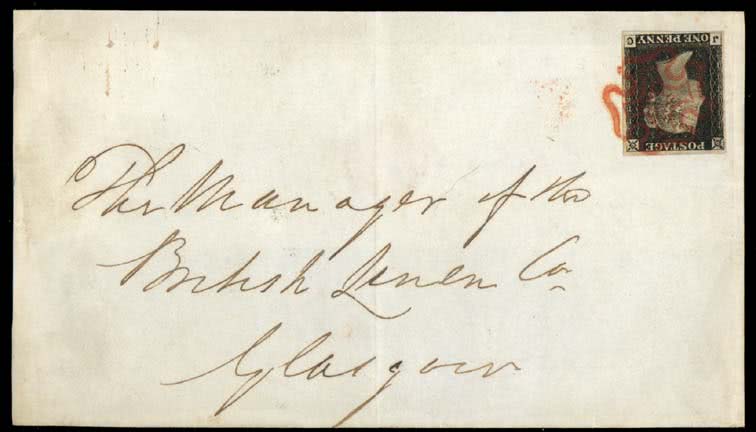 POSTAGE
ONE PENNY
The Manager of the
British Linen Co
Glasgow